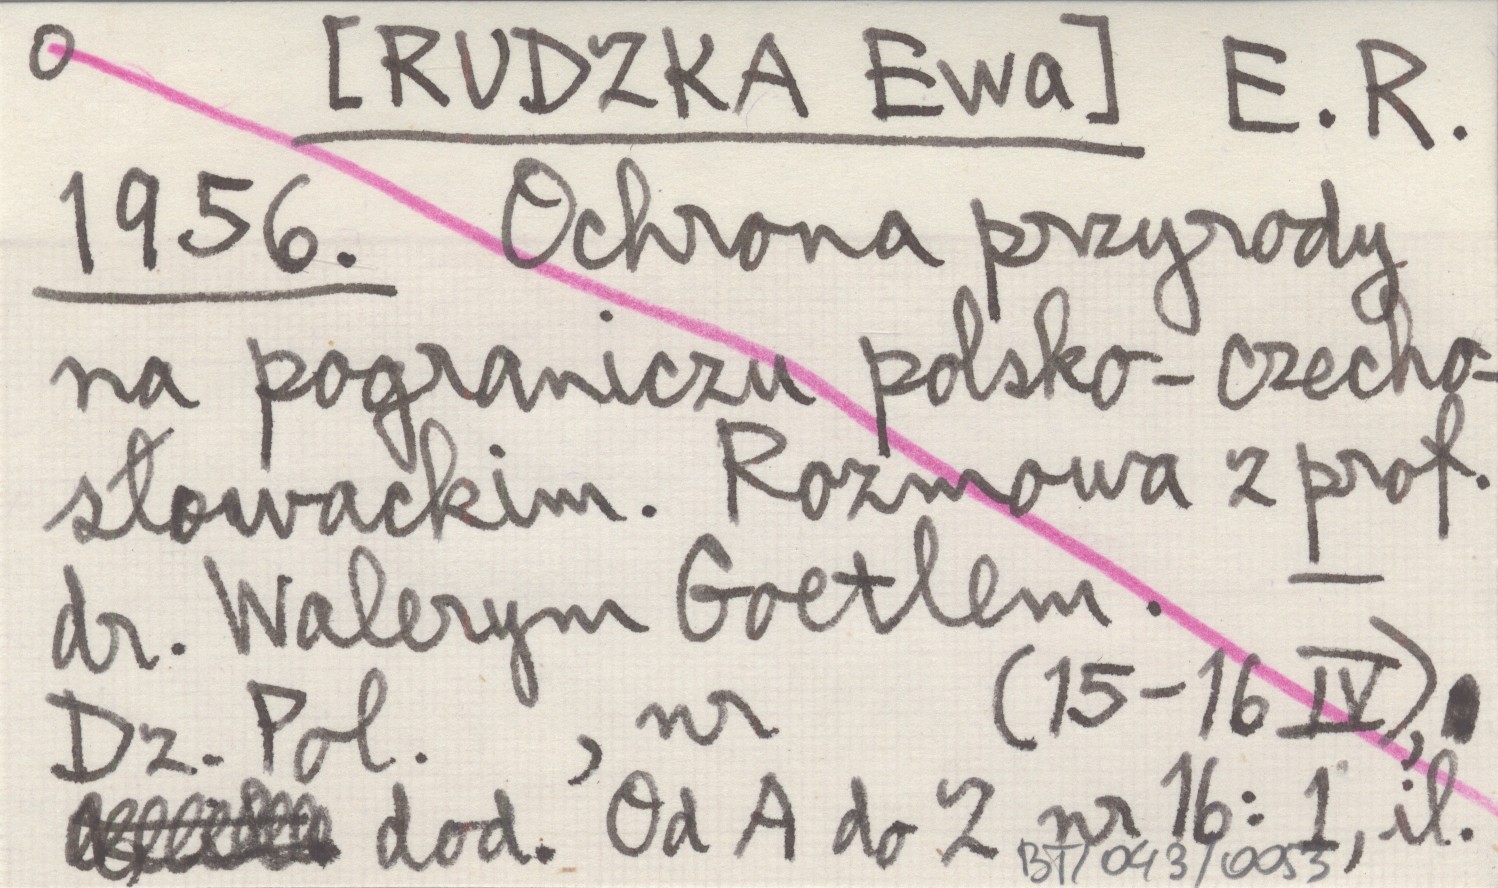 O [RUDZKA Ewa] E.R.
1956. Ochrona przyrody
na pograniczu polsko-czecho-
słowackim. Rozmowa z prof.
dr. Walerym Goetlem.
Dz. Pol. , nr (15-16 IV),
dod. Od A do Z nr 16: 1, il.
BT/043/0053